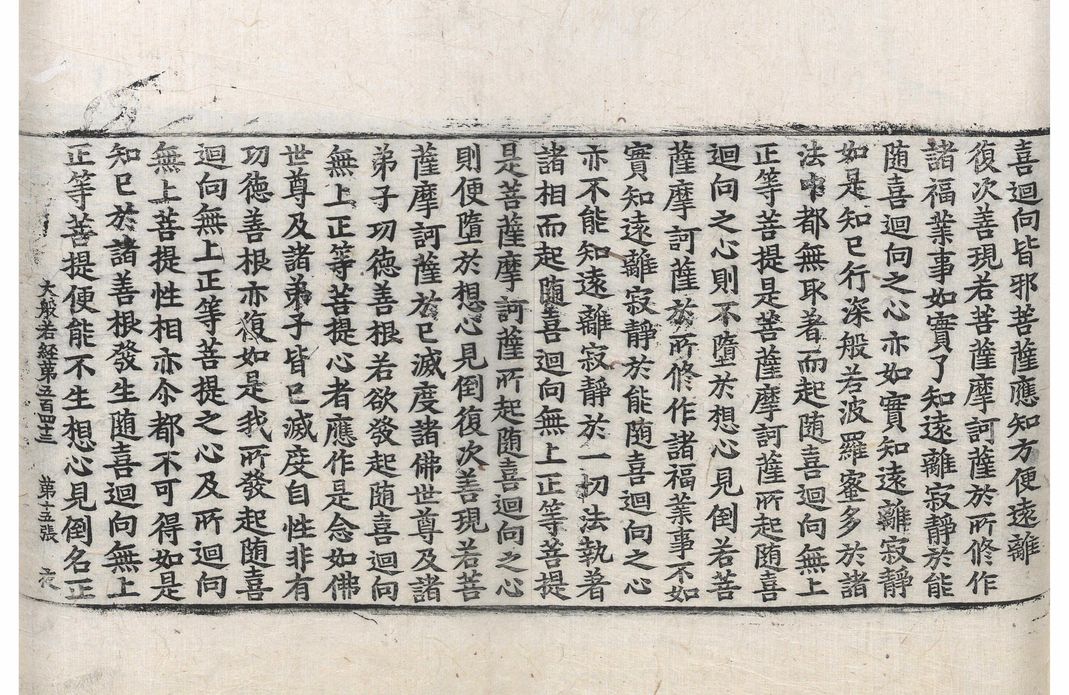 喜迴向皆邪菩薩應知方便遠離
復次善現若菩薩摩訶薩於所修作
諸福業事如實了知遠離寂靜於能
随喜迴向之心亦如實知遠離寂靜
如是知已行深般若波羅蜜多於諸
法中都無取著而起随喜迴向無上
正等菩提是菩薩摩訶薩所起随喜
迴向之心則不墮於想心見倒若菩
薩摩訶薩於所修作諸福業事不如
實知遠離寂靜於能随喜迴向之心
亦不能知遠離寂靜於一切法執著
諸相而起隨喜迴向無上正等菩提
是菩薩摩訶薩所起随喜迴向之心
則便墮於想心見倒復次善現若菩
薩摩訶薩於已滅度諸佛世尊及諸
弟子功德善根若欲發起随喜迴向
無上正等菩提心者應作是念如佛
世尊及諸弟子皆已滅度自性非有
功德善根亦復如是我所發起随喜
迴向無上正等菩提之心及所迴向
無上菩提性相亦尒都不可得如是
知已於諸善根發生随喜迴向無上
正等菩提便能不生想心見倒名正
大般若経第五百四十三 第十五張 夜